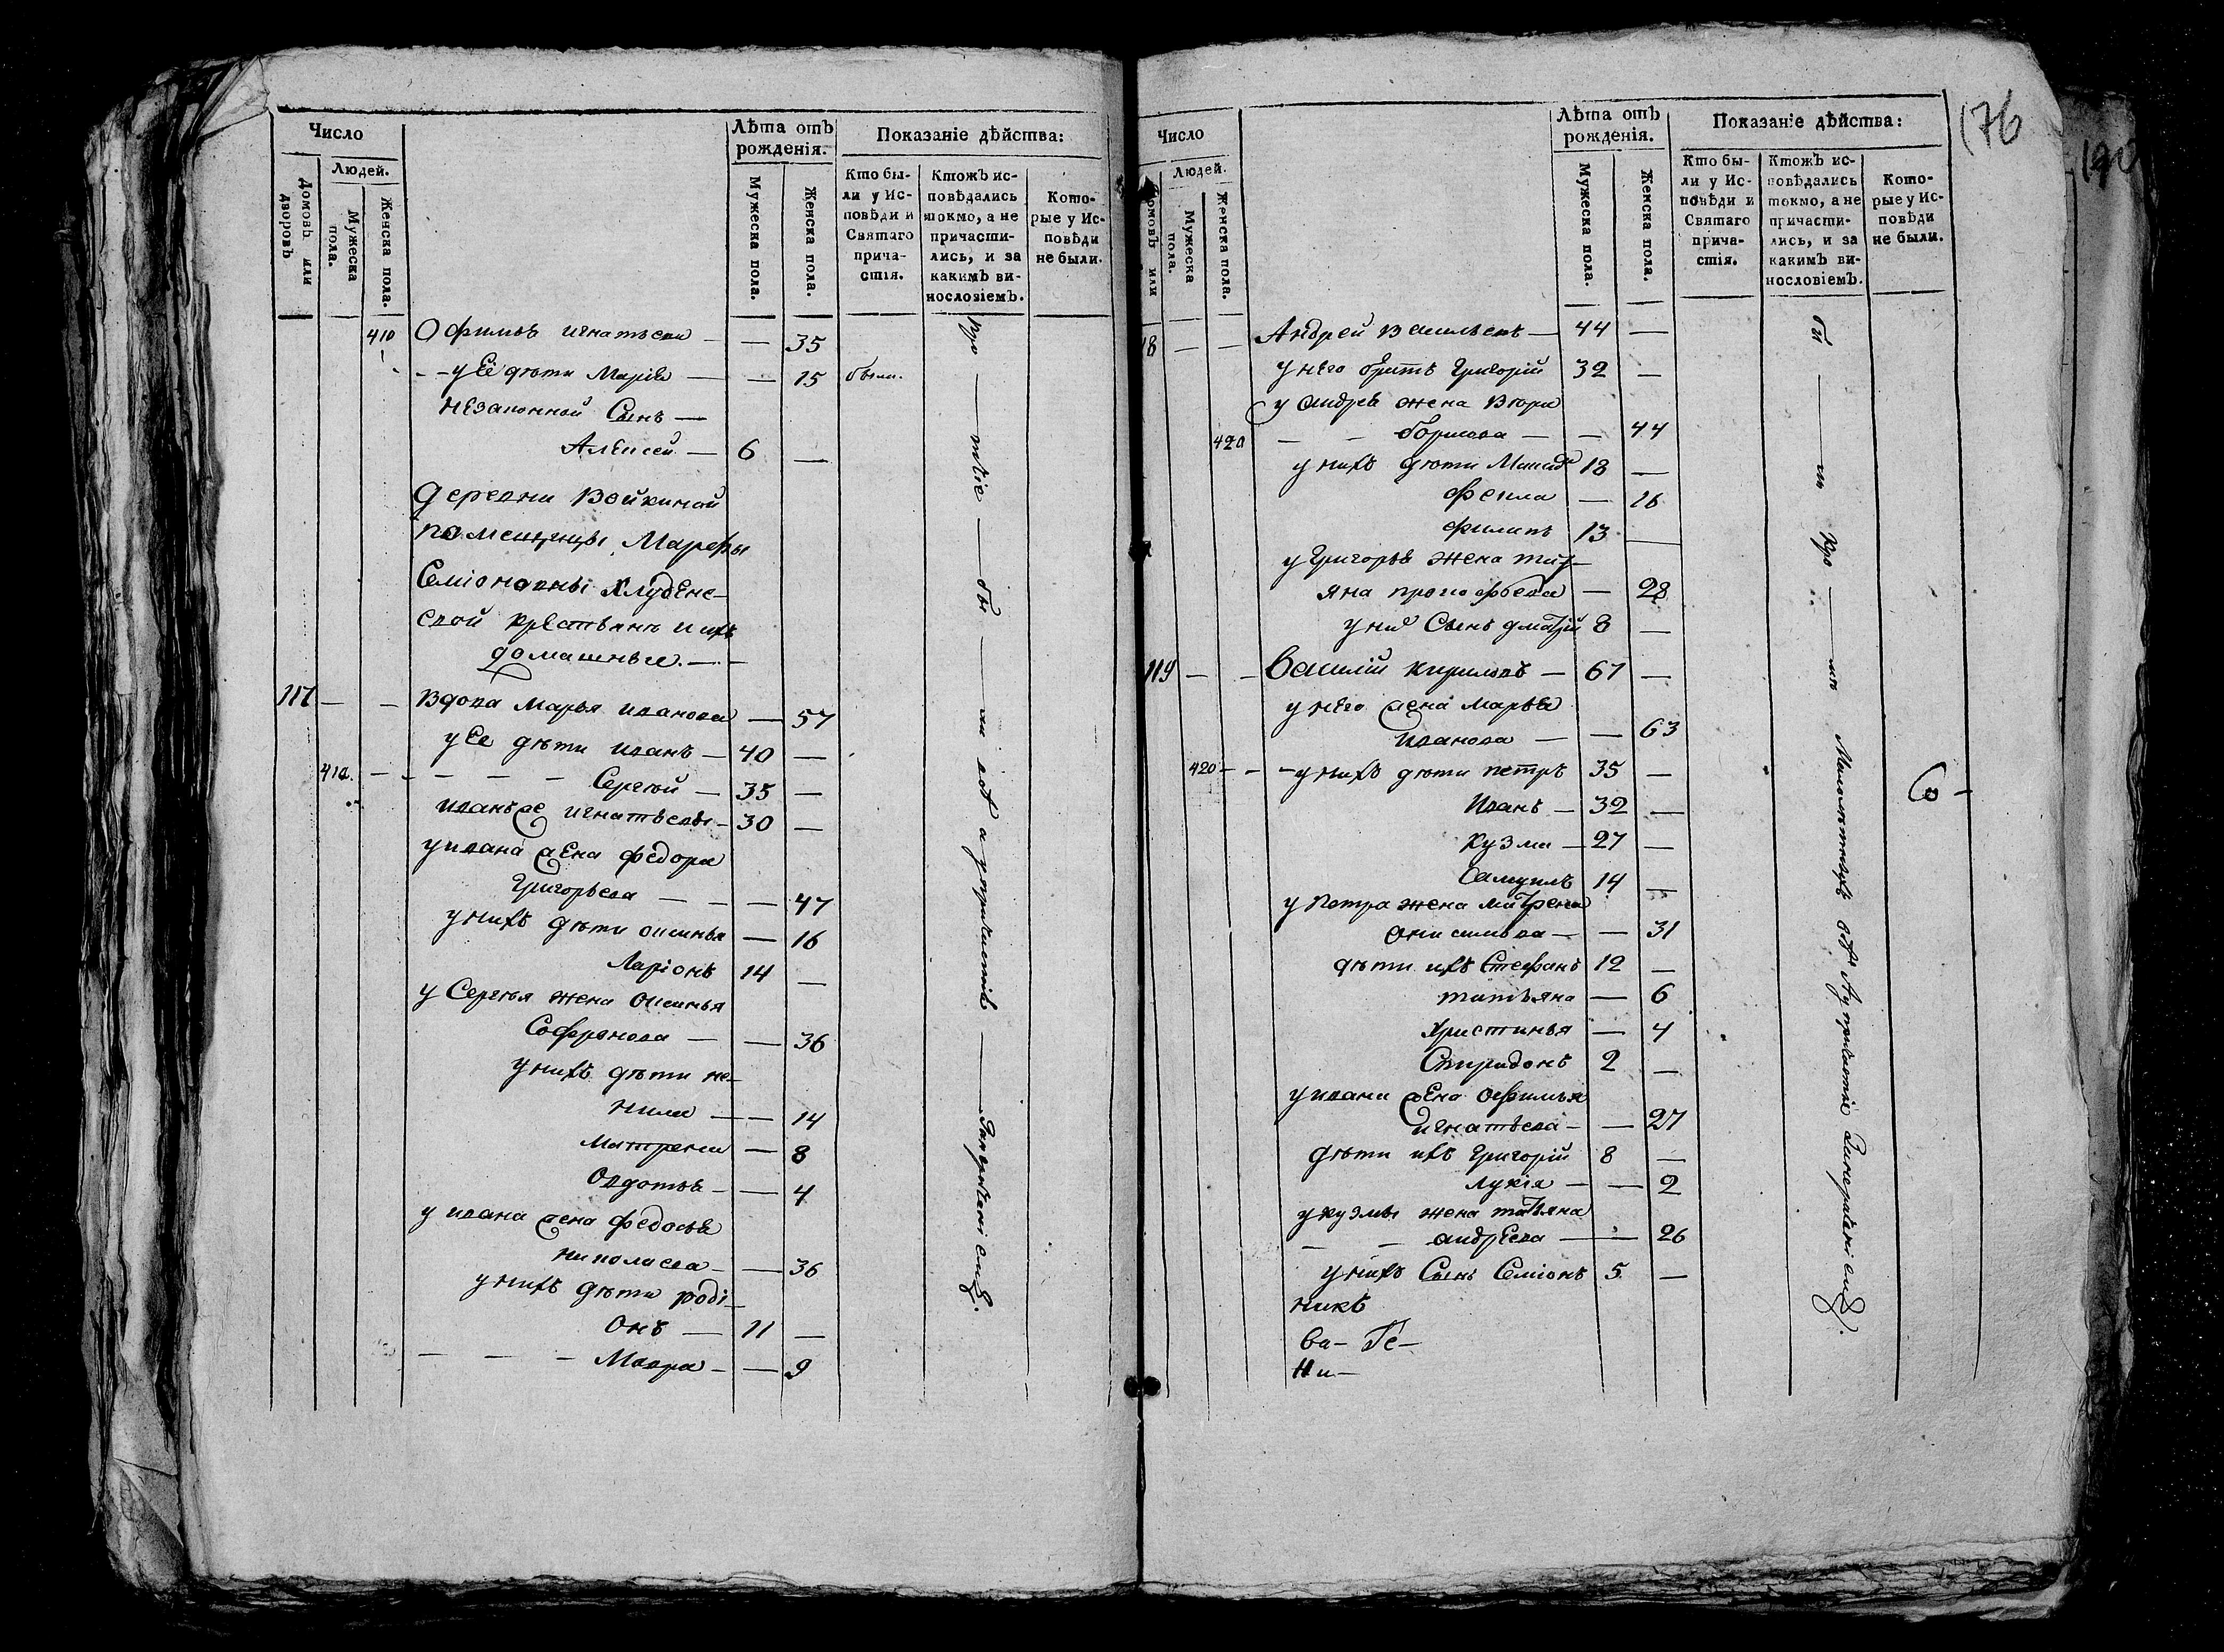 Число
Людей.
Домовъ или дворовъ
Мужеска пола.
Женска пола.
Лѣта отъ рожденія.
Мужеска пола.
Женска пола.
Показаніе дѣйства:
Кто были у Исповѣди и Святаго причастія.
Ктожъ исповѣдались токмо, а не причастились, и за какимъ винословіемъ.
Которые у Исповѣди не были.
410 Офимья игнатьева — — 35
у Ее дѣти Марія — — 15 были.
незаконной Сынъ —
Алексей — 6 —
деревни Войкиной
помещицы Марфы
Семіоновны Хлуденевской крестьянъ и ихъ
домашныеи. —
117 — — Вдова Марья иванова — 57
у Ее дѣти иванъ — 40 —
410. — — — — Сергѣй — 35 —
иванъ же игнатьевы — 30 —
у ивана жена федора
Григорьева — — — 47
у нихъ дѣти оксинья — 16
Ларіонъ 14 —
у Сергѣя жена Оксинья
Софронова — — 36
у нихъ дѣти не-
нила — — 14
Матрена — 8
Овдотья — — 4
у ивана жена федосья
николаева — — 36
у нихъ дѣти роді-
онъ — 11 —
— — — Мавра — — 9
176
190
Число
Людей.
Домовъ или
Мужеска пола.
Женска пола.
Лѣта отъ рожденія.
Мужеска пола.
Женска пола.
Показаніе дѣйства:
Кто были у Исповѣди и Святаго причастія.
Ктожъ исповѣдались токмо, а не причастились, и за какимъ винословіемъ.
Которые у Исповѣди не были.
18 — — Андрей Васильевъ — 44 —
у него братъ Григорій 32 —
у андрея жена Вгора
420 — — борисова — — 44
у нихъ дѣти 18 —
фекла — 16
филипъ 13 —
у Григорья жена тать-
яна прокофьева — 28
у них Сынъ дматрій 8 —
119 — — Василій кириловъ — 67 —
у него жена марья
иванова — — 63
420 — — — у нихъ дѣти петръ 35 —
иванъ — 32 —
кузма — 27 —
Самуилъ 14 —
у петра жена матрена
онисимова — — 31
дѣти ихъ Стефанъ 12 —
татьяна — 6
христинья — 4
Спиридонъ 2 —
у ивана жена офимья
игнатьева — — 27
дѣти ихъ Григорій 8 —
лукія — — 2
у кузмы жена татьяна
— — андреева — — 26
у нихъ Сынъ Семіонъ 5 —
никъ
Ва- Ге-
ни-